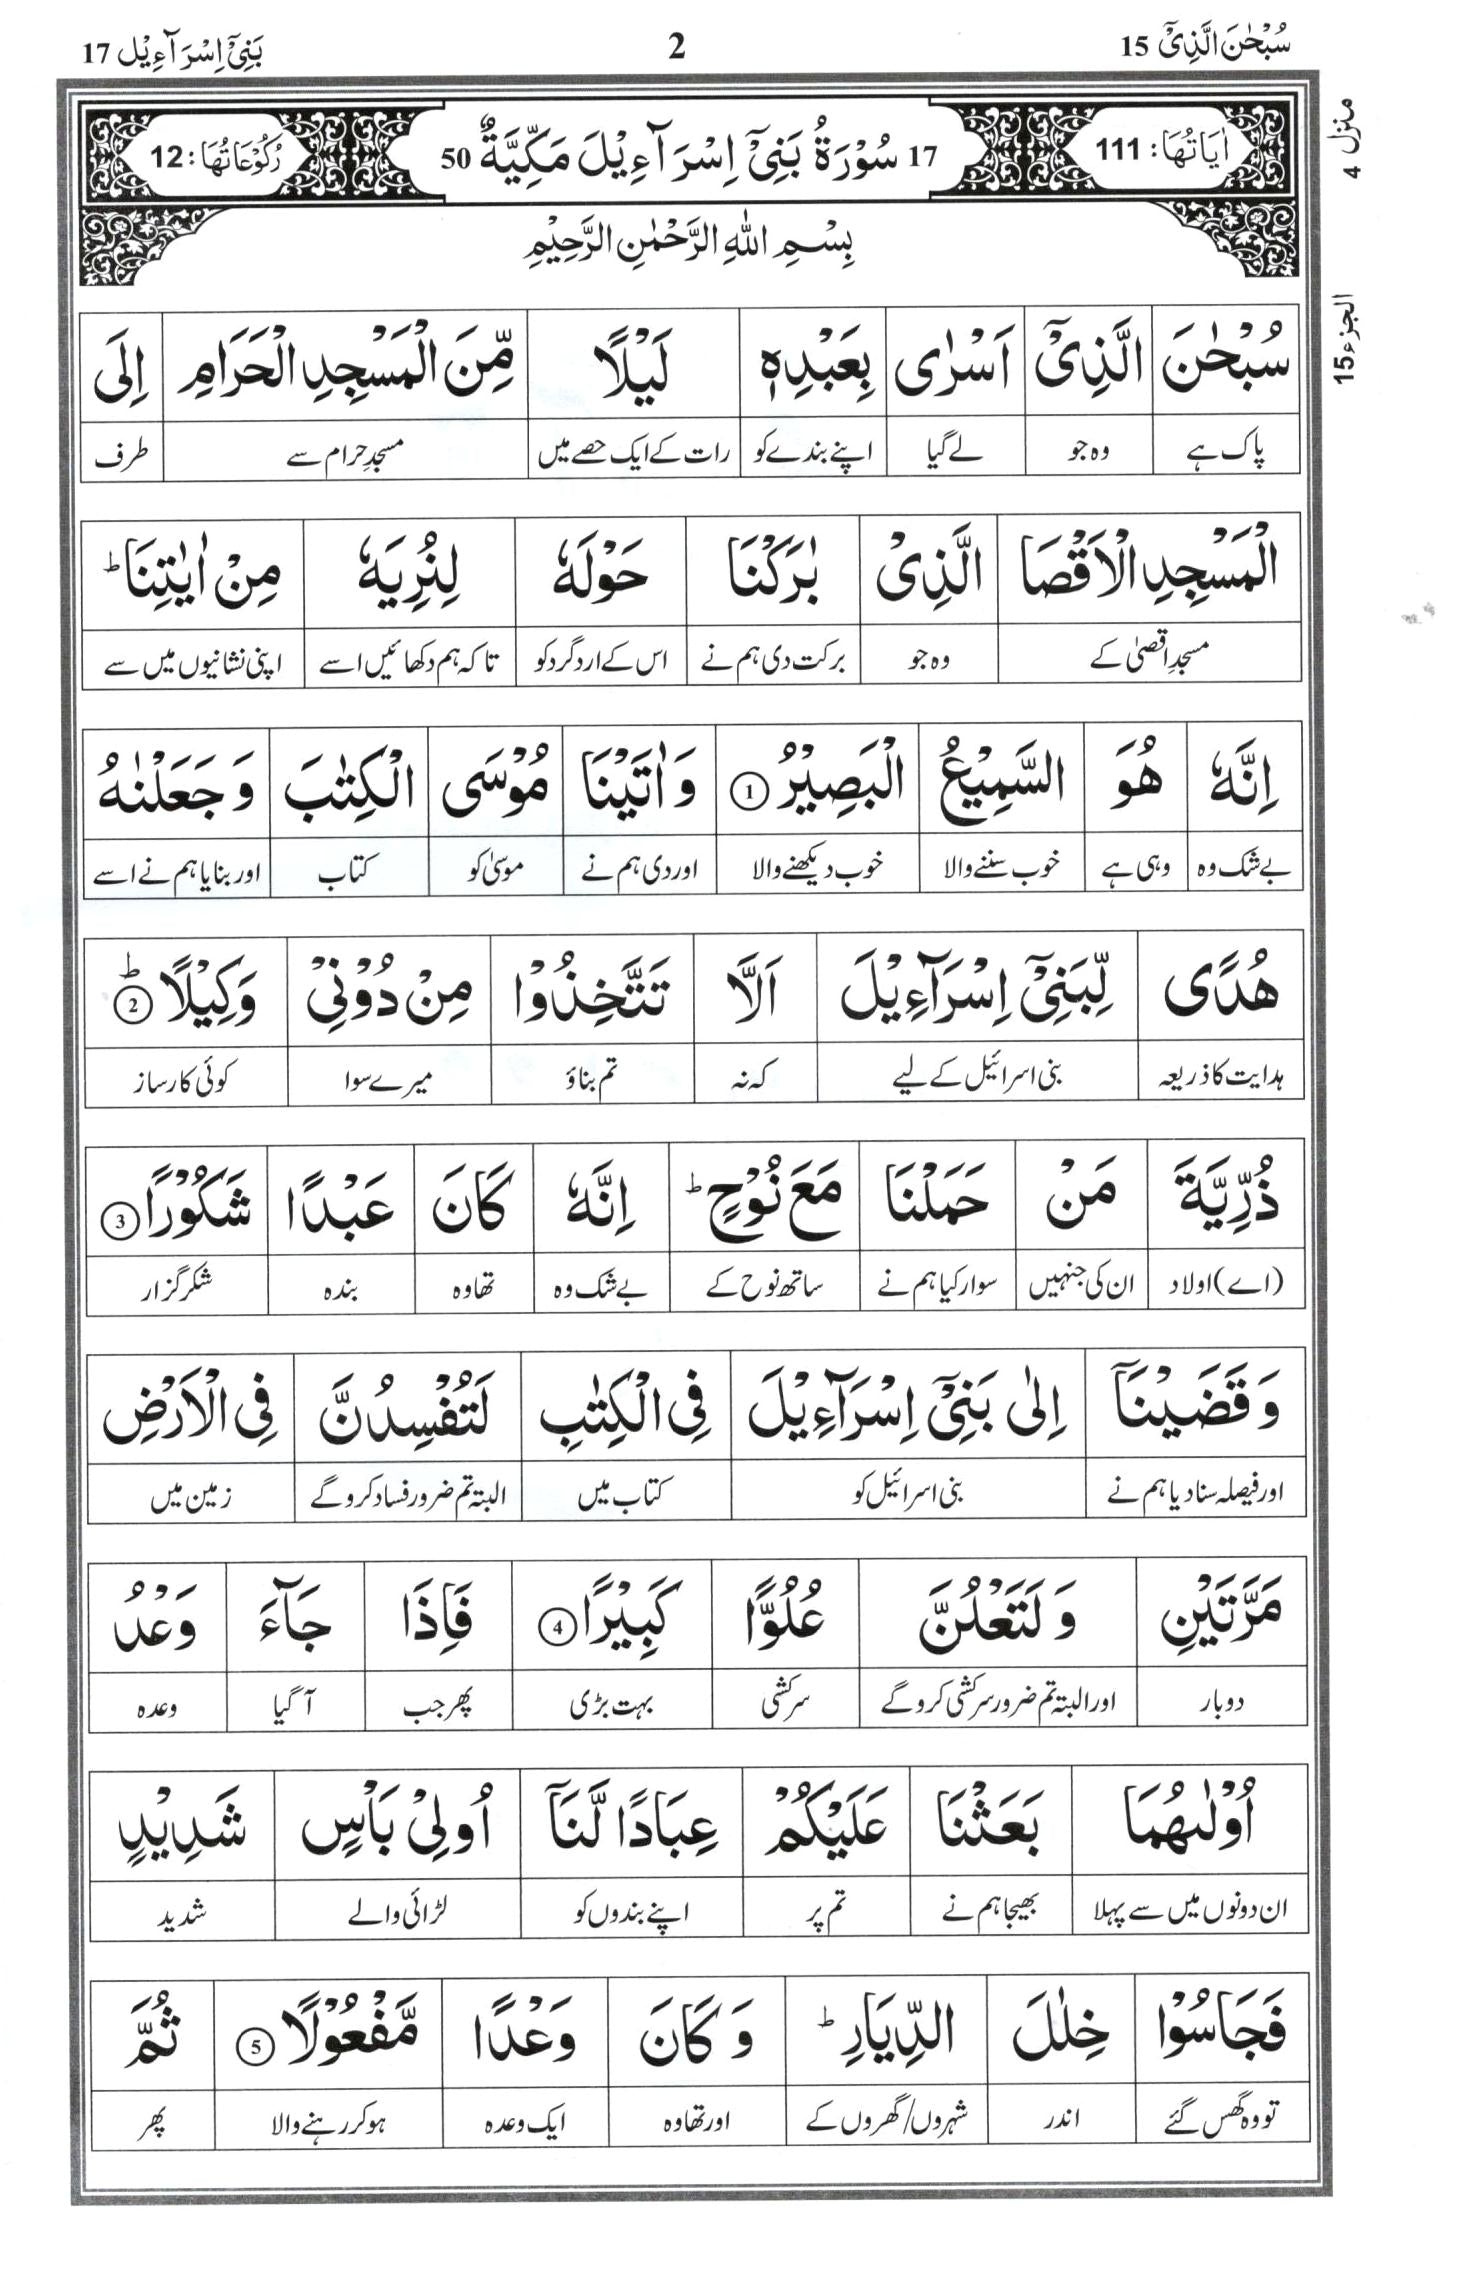 سُبْحٰنَ الَّذِیْۤ 15
2
بَنِیْۤ اِسْرَآءِیْل 17
منزل 4
الجزء 15
اٰیَاتُهَا: 111
17 سُوْرَةُ بَنِیْۤ اِسْرَآءِیْلَ مَكِّیَّةٌ 50
رُكُوْعَاتُهَا: 12
بِسْمِ اللّٰهِ الرَّحْمٰنِ الرَّحِیْمِ
سُبْحٰنَ الَّذِیْۤ اَسْرٰی بِعَبْدِهٖ لَیْلًا مِّنَ الْمَسْجِدِ الْحَرَامِ اِلَی
پاک ہے وہ جو لے گیا اپنے بندے کو رات کے ایک حصے میں مسجدِ حرام سے طرف
الْمَسْجِدِ الْاَقْصَا الَّذِیْ بٰرَكْنَا حَوْلَهٗ لِنُرِیَهٗ مِنْ اٰیٰتِنَا ؕ
مسجدِ اقصیٰ کے وہ جو برکت دی ہم نے اس کے ارد گرد کو تاکہ ہم دکھائیں اسے اپنی نشانیوں میں سے
اِنَّهٗ هُوَ السَّمِیْعُ الْبَصِیْرُ ① وَ اٰتَیْنَا مُوْسَی الْكِتٰبَ وَ جَعَلْنٰهُ
بے شک وہ وہی ہے خوب سننے والا خوب دیکھنے والا اور دی ہم نے موسیٰ کو کتاب اور بنایا ہم نے اسے
هُدًی لِّبَنِیْۤ اِسْرَآءِیْلَ اَلَّا تَتَّخِذُوْا مِنْ دُوْنِیْ وَكِیْلًا ؕ ②
ہدایت کا ذریعہ بنی اسرائیل کے لیے کہ نہ تم بناؤ میرے سوا کوئی کارساز
ذُرِّیَّةَ مَنْ حَمَلْنَا مَعَ نُوْحٍ ؕ اِنَّهٗ كَانَ عَبْدًا شَكُوْرًا ③
(اے) اولاد ان کی جنہیں سوار کیا ہم نے ساتھ نوح کے بے شک وہ تھا وہ بندہ شکر گزار
وَ قَضَیْنَاۤ اِلٰی بَنِیْۤ اِسْرَآءِیْلَ فِی الْكِتٰبِ لَتُفْسِدُنَّ فِی الْاَرْضِ
اور فیصلہ سنا دیا ہم نے بنی اسرائیل کو کتاب میں البتہ تم ضرور فساد کرو گے زمین میں
مَرَّتَیْنِ وَ لَتَعْلُنَّ عُلُوًّا كَبِیْرًا ④ فَاِذَا جَآءَ وَعْدُ
دو بار اور البتہ تم ضرور سرکشی کرو گے سرکشی بہت بڑی پھر جب آ گیا وعدہ
اُوْلٰىهُمَا بَعَثْنَا عَلَیْكُمْ عِبَادًا لَّنَاۤ اُولِیْ بَاْسٍ شَدِیْدٍ
ان دونوں میں سے پہلا بھیجا ہم نے تم پر اپنے بندوں کو لڑائی والے شدید
فَجَاسُوْا خِلٰلَ الدِّیَارِ ؕ وَ كَانَ وَعْدًا مَّفْعُوْلًا ⑤ ثُمَّ
تو وہ گھس گئے اندر شہروں/گھروں کے اور تھا وہ ایک وعدہ ہو کر رہنے والا پھر